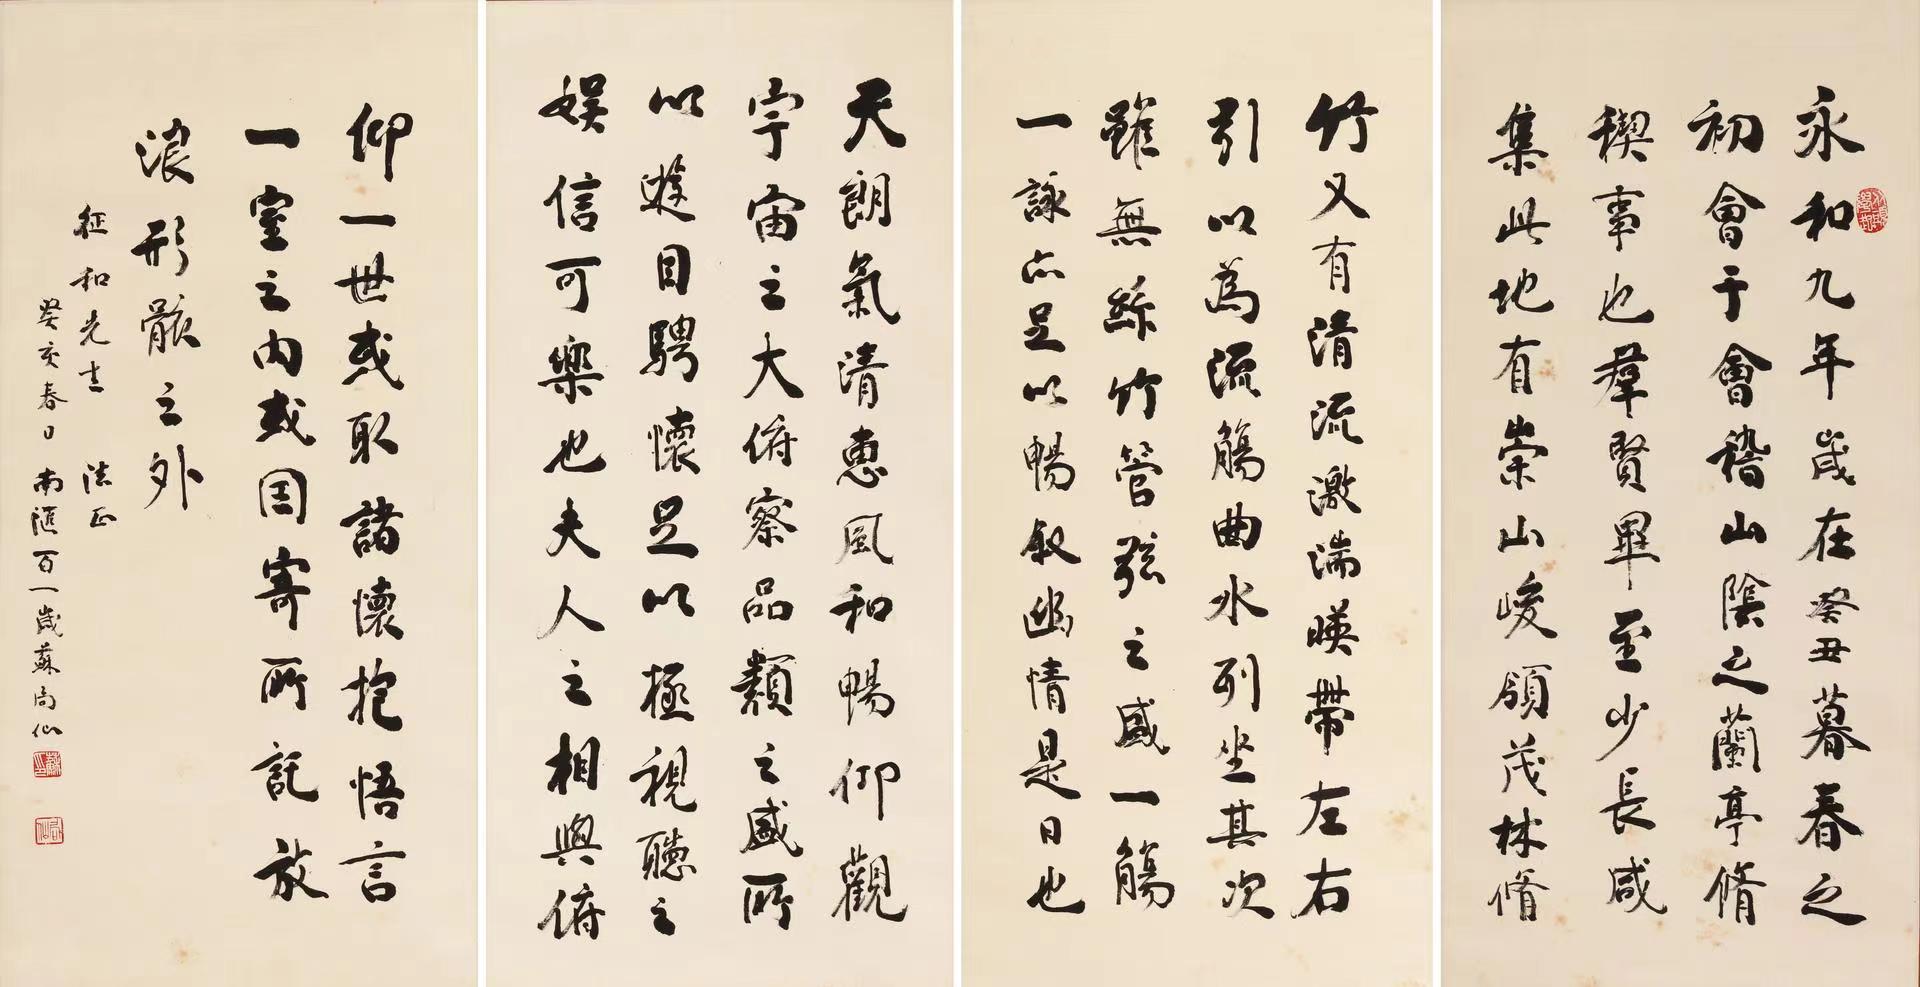 永和九年歲在癸丑暮春之
初會于會稽山陰之蘭亭脩
稧事也羣賢畢至少長咸
集此地有崇山峻領茂林脩
竹又有清流激湍暎帶左右
引以為流觴曲水列坐其次
雖無絲竹管弦之盛一觴
一詠亦足以暢敘幽情是日也
天朗氣清惠風和暢仰觀
宇宙之大俯察品類之盛所
以遊目騁懷足以極視聽之
娛信可樂也夫人之相與俯
仰一世或取諸懷抱悟言
一室之內或因寄所託放
浪形骸之外
征和先生 法正
癸亥春日 南匯百一歲蘇局仙